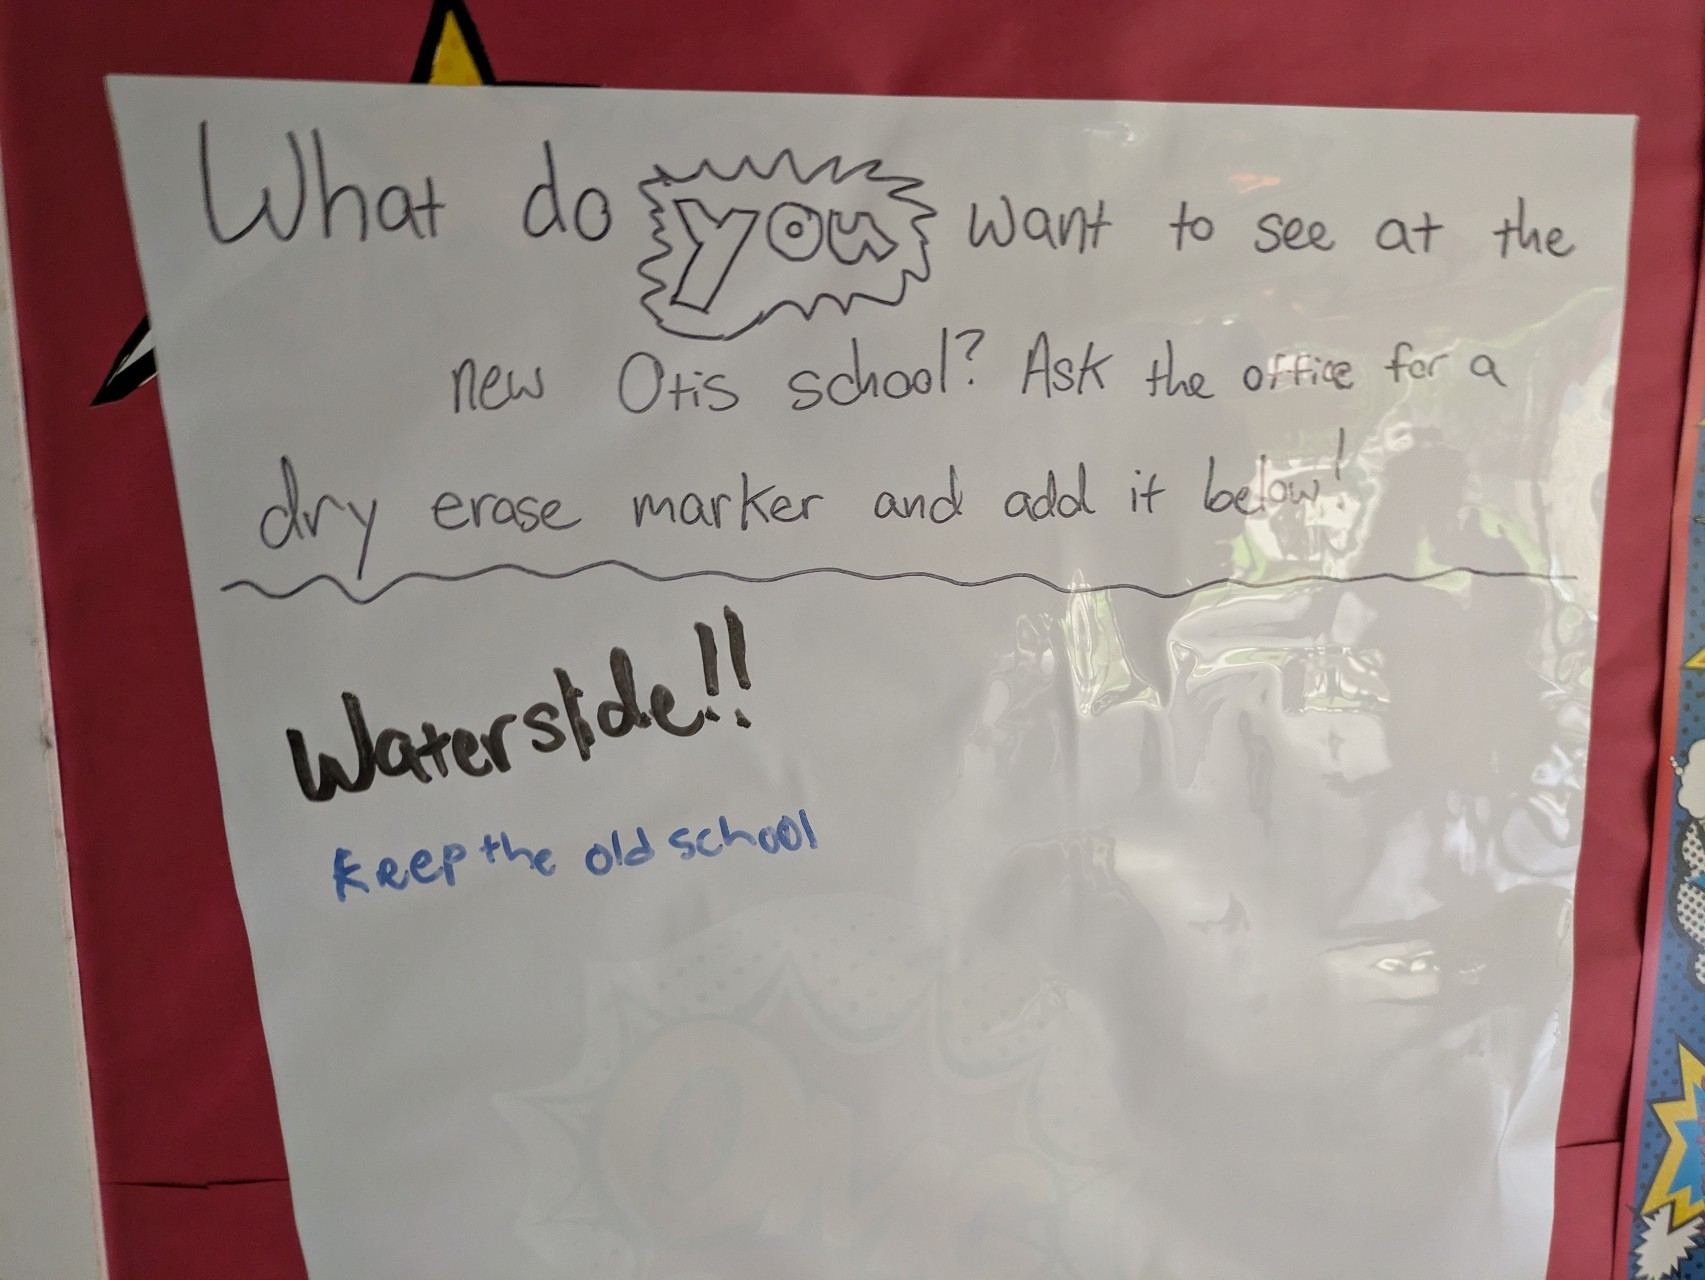 What do you want to see at the
new Otis school? Ask the office for a
dry erase marker and add it below!
Waterslide!!
Keep the old school